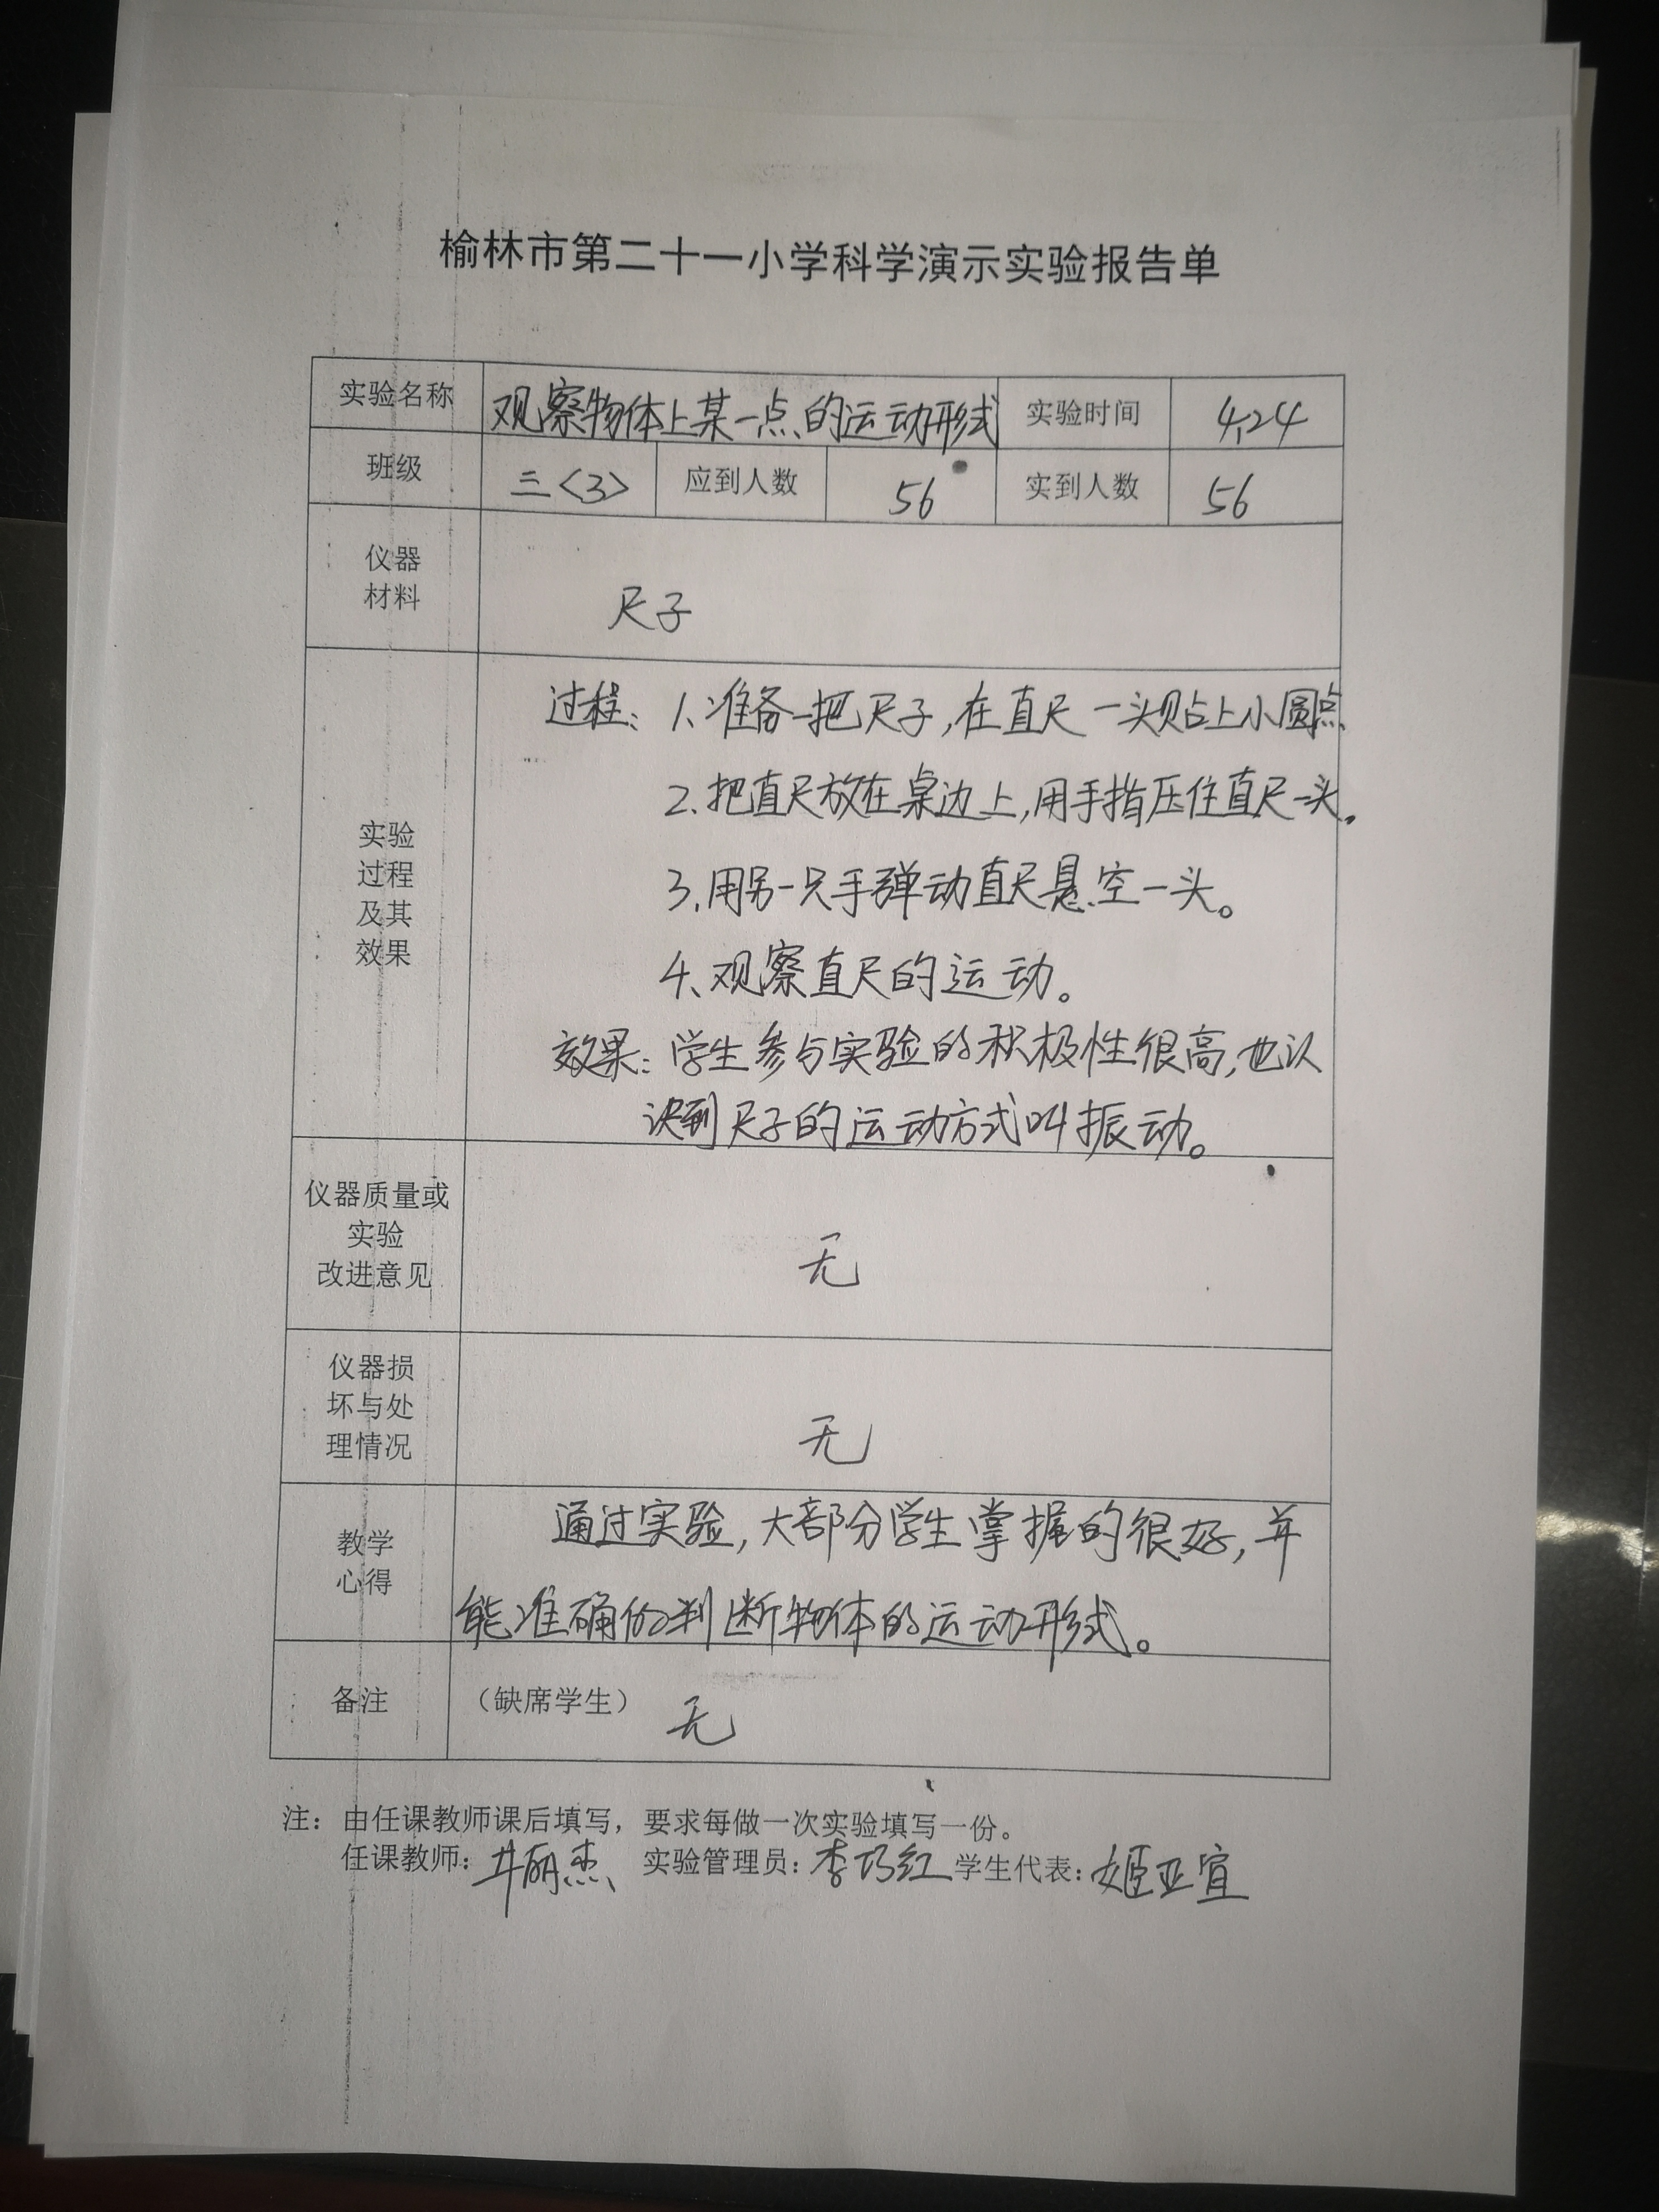 榆林市第二十一小学科学演示实验报告单
实验名称 观察物体上某一点的运动形式 实验时间 4.24
班级 三<3> 应到人数 56 实到人数 56
仪器
材料
尺子
实验
过程
及其
效果
过程：1、准备一把尺子,在直尺一头贴上小圆点
2.把直尺放在桌边上,用手指压住直尺一头。
3.用另一只手弹动直尺悬空一头。
4、观察直尺的运动。
效果：学生参与实验的积极性很高,也认
识到尺子的运动方式叫振动。
仪器质量或
实验
改进意见
无
仪器损
坏与处
理情况
无
教学
心得
通过实验,大部分学生掌握的很好,并
能准确的判断物体的运动形式。
备注 （缺席学生） 无
注：由任课教师课后填写，要求每做一次实验填写一份。
任课教师：井丽杰 实验管理员：李巧红 学生代表：姬亚宜